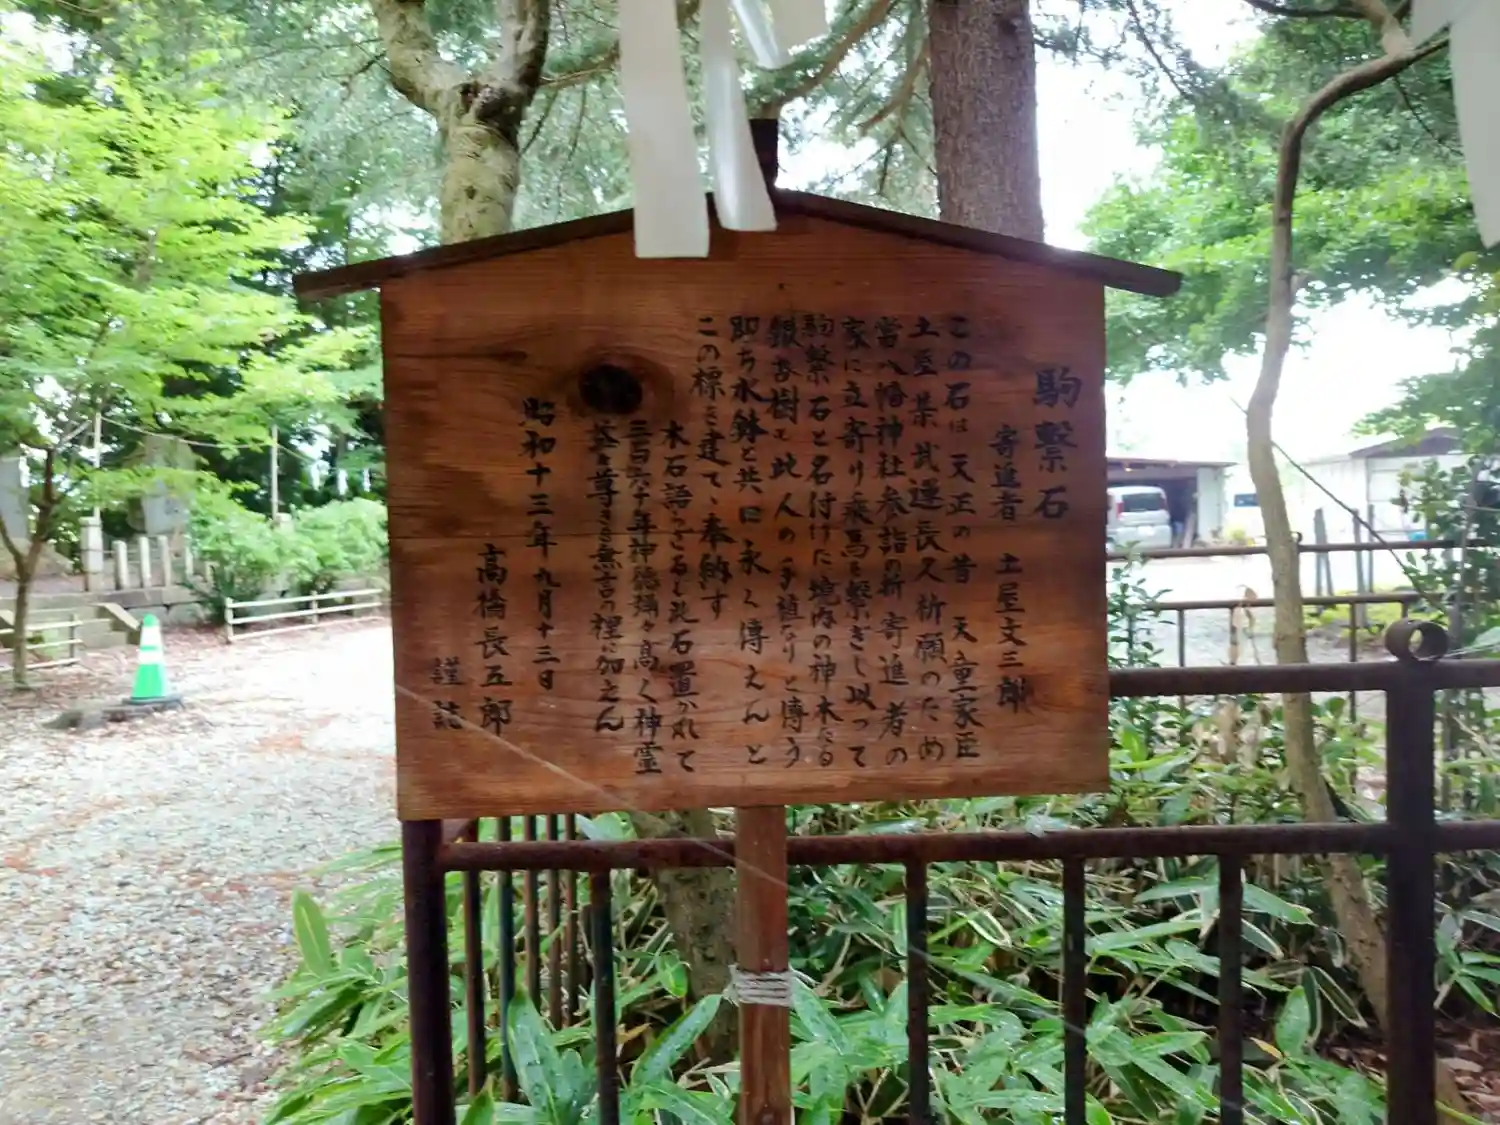 駒繋石
寄進者 土屋文三郎
この石は天正の昔 天童家臣
土屋某武運長久祈願のため
當八幡神社参詣の折寄進者の
家に立寄り乗馬を繋ぎし以って
駒繋石と名付けた境内の神木たる
銀杏樹も此人の手植なりと傳う
即ち水鉢と共に永く傳えんと
この標を建て、奉納す
木石語らざるも此石置かれて
三百六十年神徳彌々高く神霊
益々尊さを無言の裡に加えん
昭和十三年九月十三日
高橋長五郎
謹誌